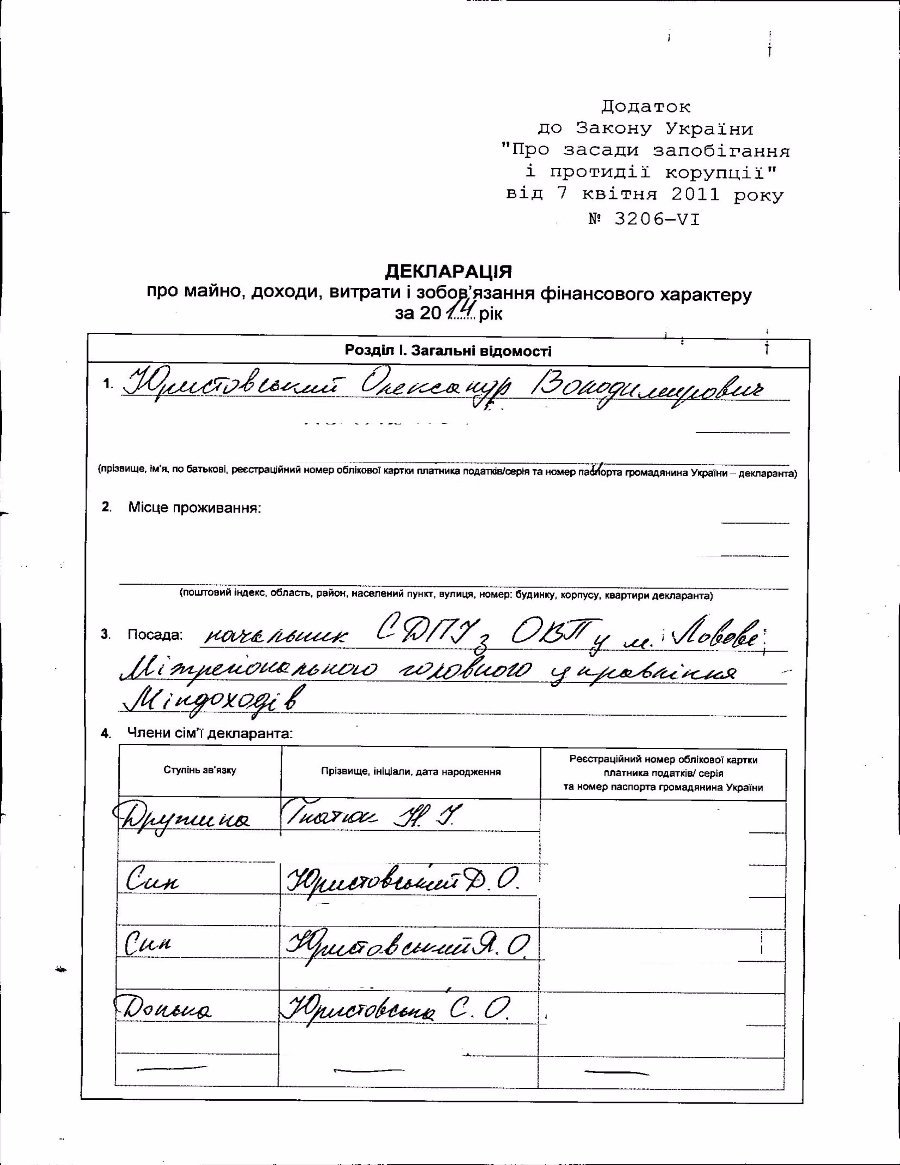 Додаток
до Закону України
"Про засади запобігання
і протидії корупції"
від 7 квітня 2011 року
№ 3206–VI
ДЕКЛАРАЦІЯ
про майно, доходи, витрати і зобов’язання фінансового характеру
за 2014 рік
Розділ І. Загальні відомості
1. Юристовський Олександр Володимирович
(прізвище, ім’я, по батькові, реєстраційний номер облікової картки платника податків/серія та номер паспорта громадянина України – декларанта)
2. Місце проживання:
(поштовий індекс, область, район, населений пункт, вулиця, номер: будинку, корпусу, квартири декларанта)
3. Посада: начальник СДПІ з ОВП у м. Львові
Міжрегіонального головного управління
Міндоходів
4. Члени сім’ї декларанта:
Ступінь зв’язку Прізвище, ініціали, дата народження Реєстраційний номер облікової картки
платника податків/ серія
та номер паспорта громадянина України
Дружина Гнатюк
Син Юристовський Д. О.
Син Юристовський Я. О.
Донька Юристовська С. О.